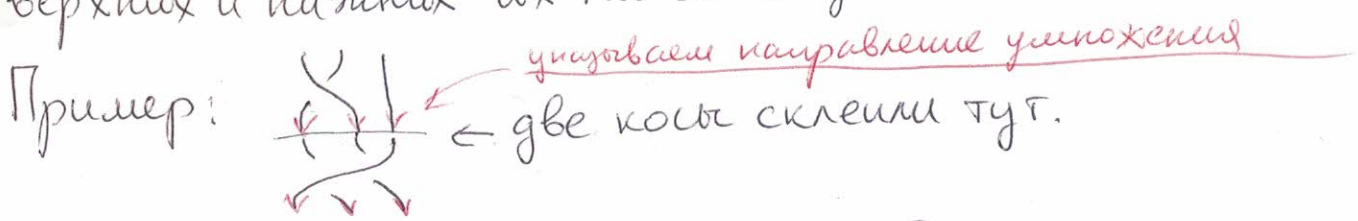 верхних и нижних их
указываем направление умножения
Пример:
← две косы склеили тут.